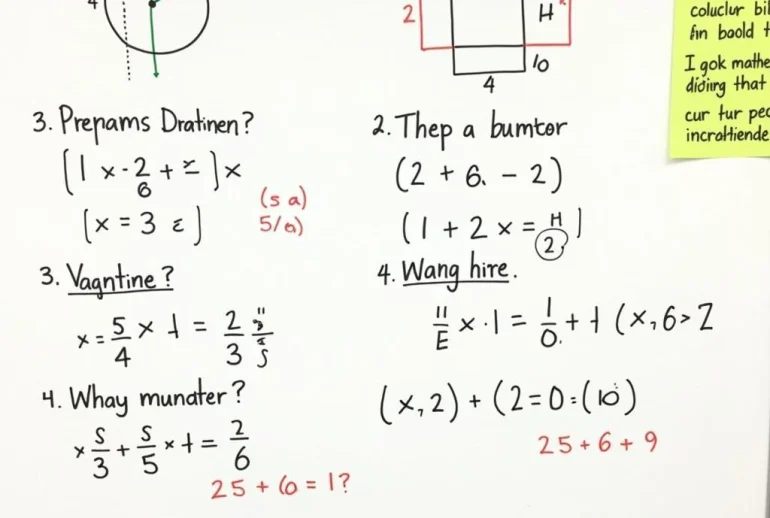 4
2
H
10
4
coluclur bil
fin baold t
I gok mathe
didiirg that
cur tur pec
incraHiende
3. Prepams Dratinen?
(1 x - 2/6 + 2) x
(x = 3 ε)
(s a)
5/6)
2. Thep a bumtor
(2 + 6. - 2)
(1 + 2 x = H/2)
3. Vagntine?
x = 5/4 x 1 = 2/3
4. Wang hire.
11/E x · 1 = 1/0. + 1 (x, 6 > 2
4. Whay munater?
x S/3 + S/5 x t = 2/6
25 + 6 = 1?
(x, 2) + (2 = 0 = (10)
25 + 6 + 9